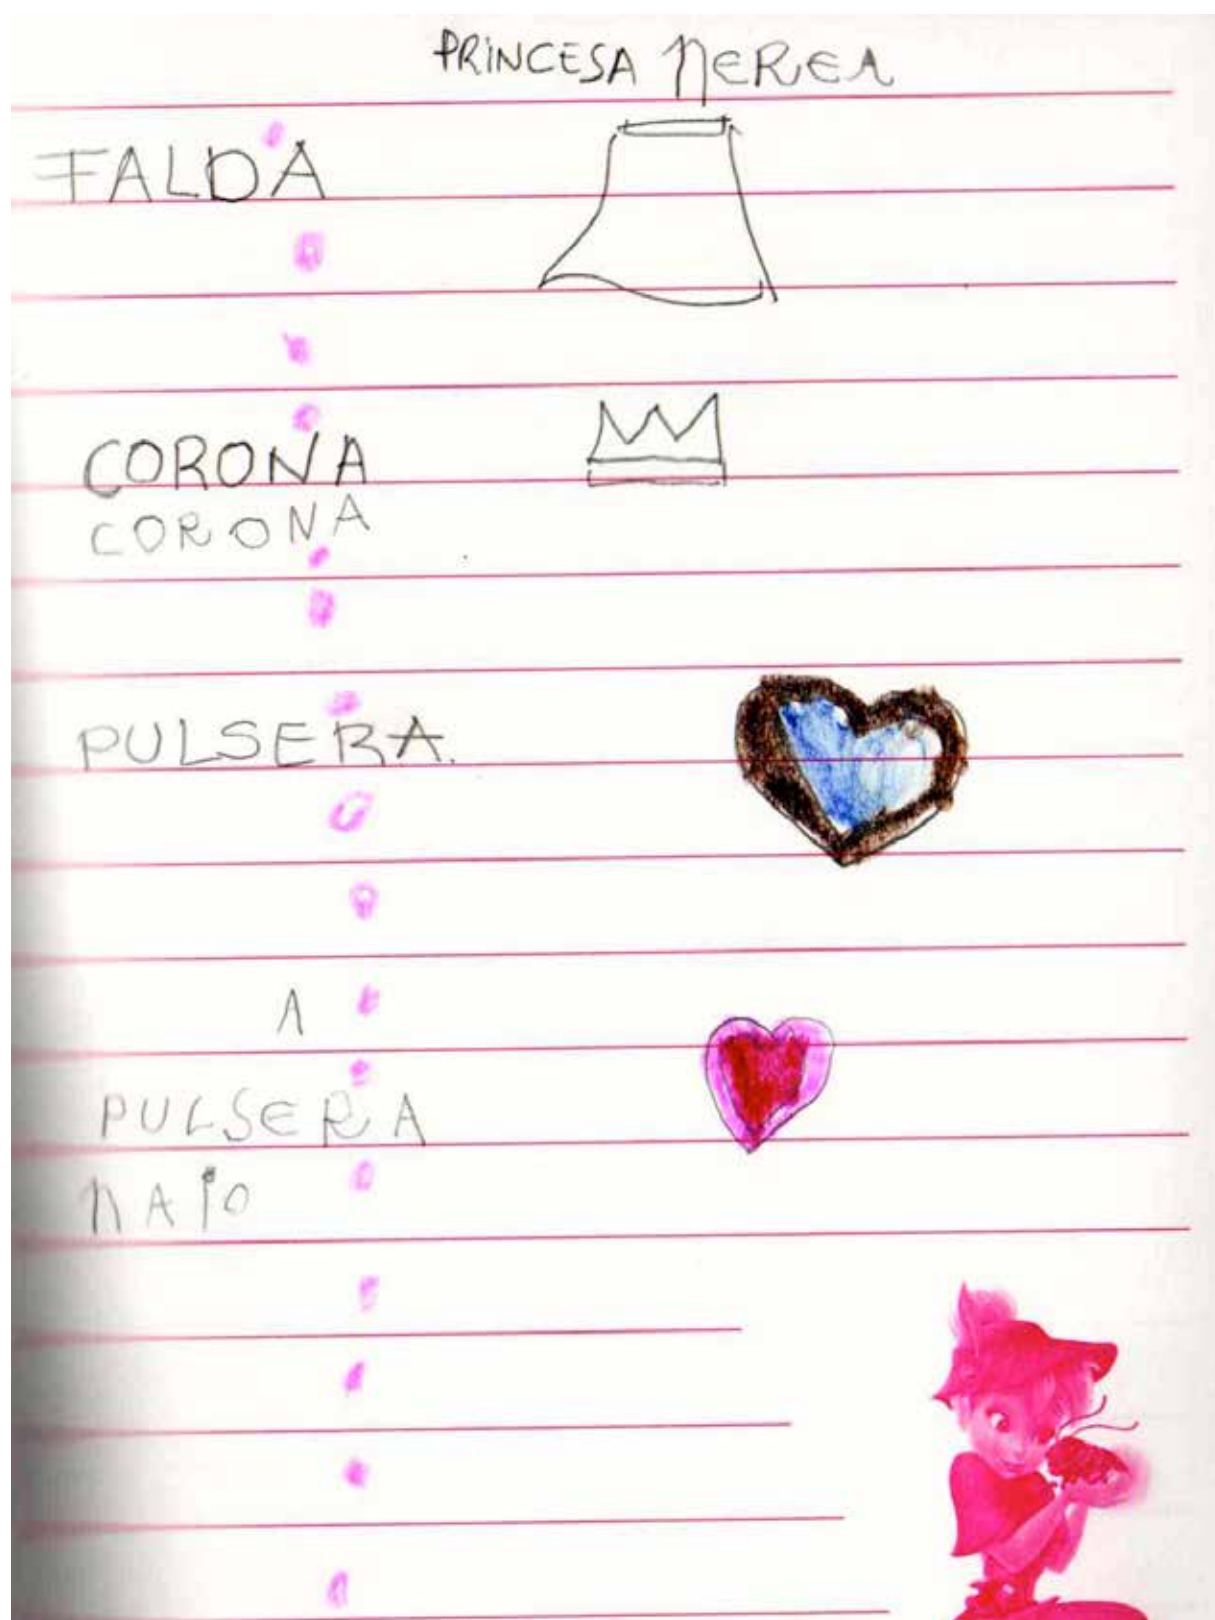 PRINCESA NEREA
FALDA
CORONA
CORONA
PULSERA.
A
PULSERA